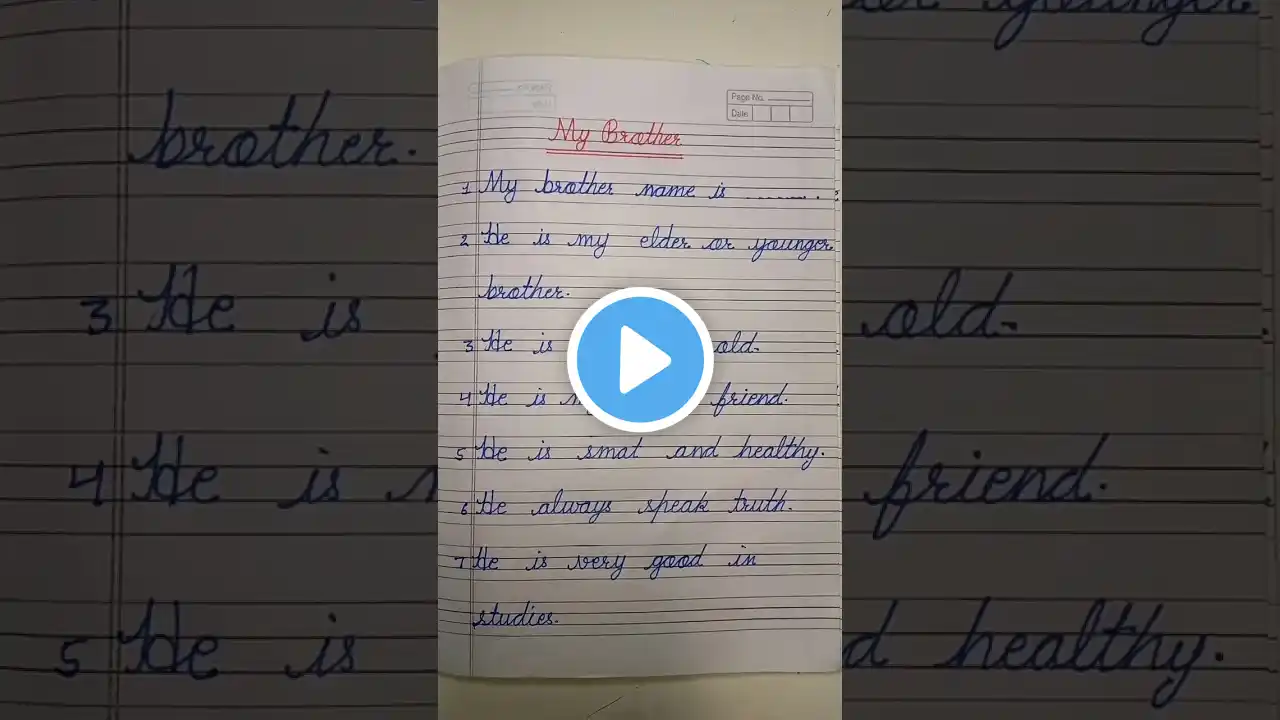 Page No.
Date
My Brother
1 My brother name is ........ .
2 He is my elder or younger
brother.
3 He is old.
4 He is friend.
5 He is smat and healthy.
6 He always speak truth.
7 He is very good in
studies.